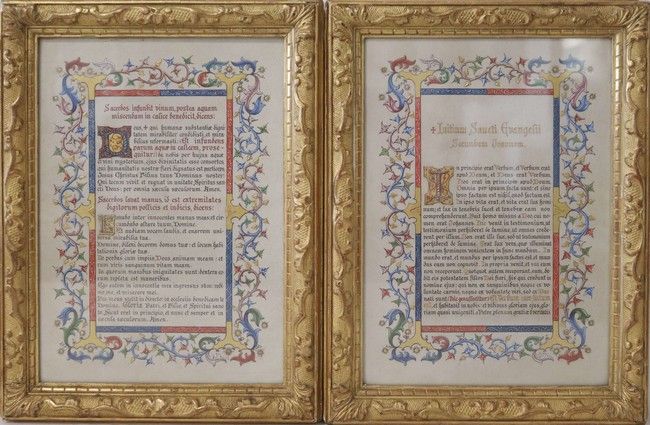 Sacerdos infundit vinum, postea aquam
miscendam in calice benedicit, dicens:
Deus, + qui humanæ substantiæ digni
tatem mirabiliter condidisti, et mirabilius
reformasti: Et infundens
parum aquæ in calicem, prose
quitur: da nobis per hujus aquæ
et vini mysterium, ejus divinitatis esse consortes,
qui humanitatis nostræ fieri dignatus est particeps
Jesus Christus Filius tuus Dominus noster:
Qui tecum vivit et regnat in unitate Spiritus san
cti Deus: per omnia sæcula sæculorum. Amen.
Sacerdos lavat manus, id est extremitates
digitorum pollicis et indicis, dicens:
Lavabo inter innocentes manus meas: et cir
cumdabo altare tuum, Domine.
Ut audiam vocem laudis, et enarrem uni
versa mirabilia tua.
Domine, dilexi decorem domus tuæ: et locum habi
tationis gloriæ tuæ.
Ne perdas cum impiis Deus animam meam: et
cum viris sanguinum vitam meam.
In quorum manibus iniquitates sunt: dextera eo
rum repleta est muneribus.
Ego autem in innocentia mea ingressus sum: redi
me me, et miserere mei.
Pes meus stetit in directo: in ecclesiis benedicam te
Domine. Gloria Patri, et Filio, et Spiritui sanc
to. Sicut erat in principio, et nunc et semper et in
sæcula sæculorum. Amen.
+ Initium Sancti Evangelii
Secundum Joannem.
In principio erat Verbum, et Verbum erat
apud Deum, et Deus erat Verbum.
Hoc erat in principio apud Deum.
Omnia per ipsum facta sunt: et sine
ipso factum est nihil, quod factum est
In ipso vita erat, et vita erat lux homi
num: et lux in tenebris lucet et tenebræ eam non
comprehenderunt. Fuit homo missus a Deo cui no
men erat Johannes. Hic venit in testimonium, ut
testimonium perhiberet de lumine, ut omnes crede
rent per illum. Non erat ille lux, sed ut testimonium
perhiberet de lumine. Erat lux vera, quæ illuminat
omnem hominem venientem in hunc mundum. In
mundo erat, et mundus per ipsum factus est et mun
dus eum non cognovit. In propria venit, et sui eum
non receperunt. Quotquot autem receperunt eum, de
dit eis potestatem filios Dei fieri, his qui credunt in
nomine ejus: qui non ex sanguinibus, neque ex vo
luntate carnis, neque ex voluntate viri, sed ex Deo
nati sunt: (hic genuflectitur) Et Verbum caro factum
est, et habitavit in nobis: et vidimus gloriam ejus, glo
riam quasi unigeniti a Patre plenum gratiæ et veritatis